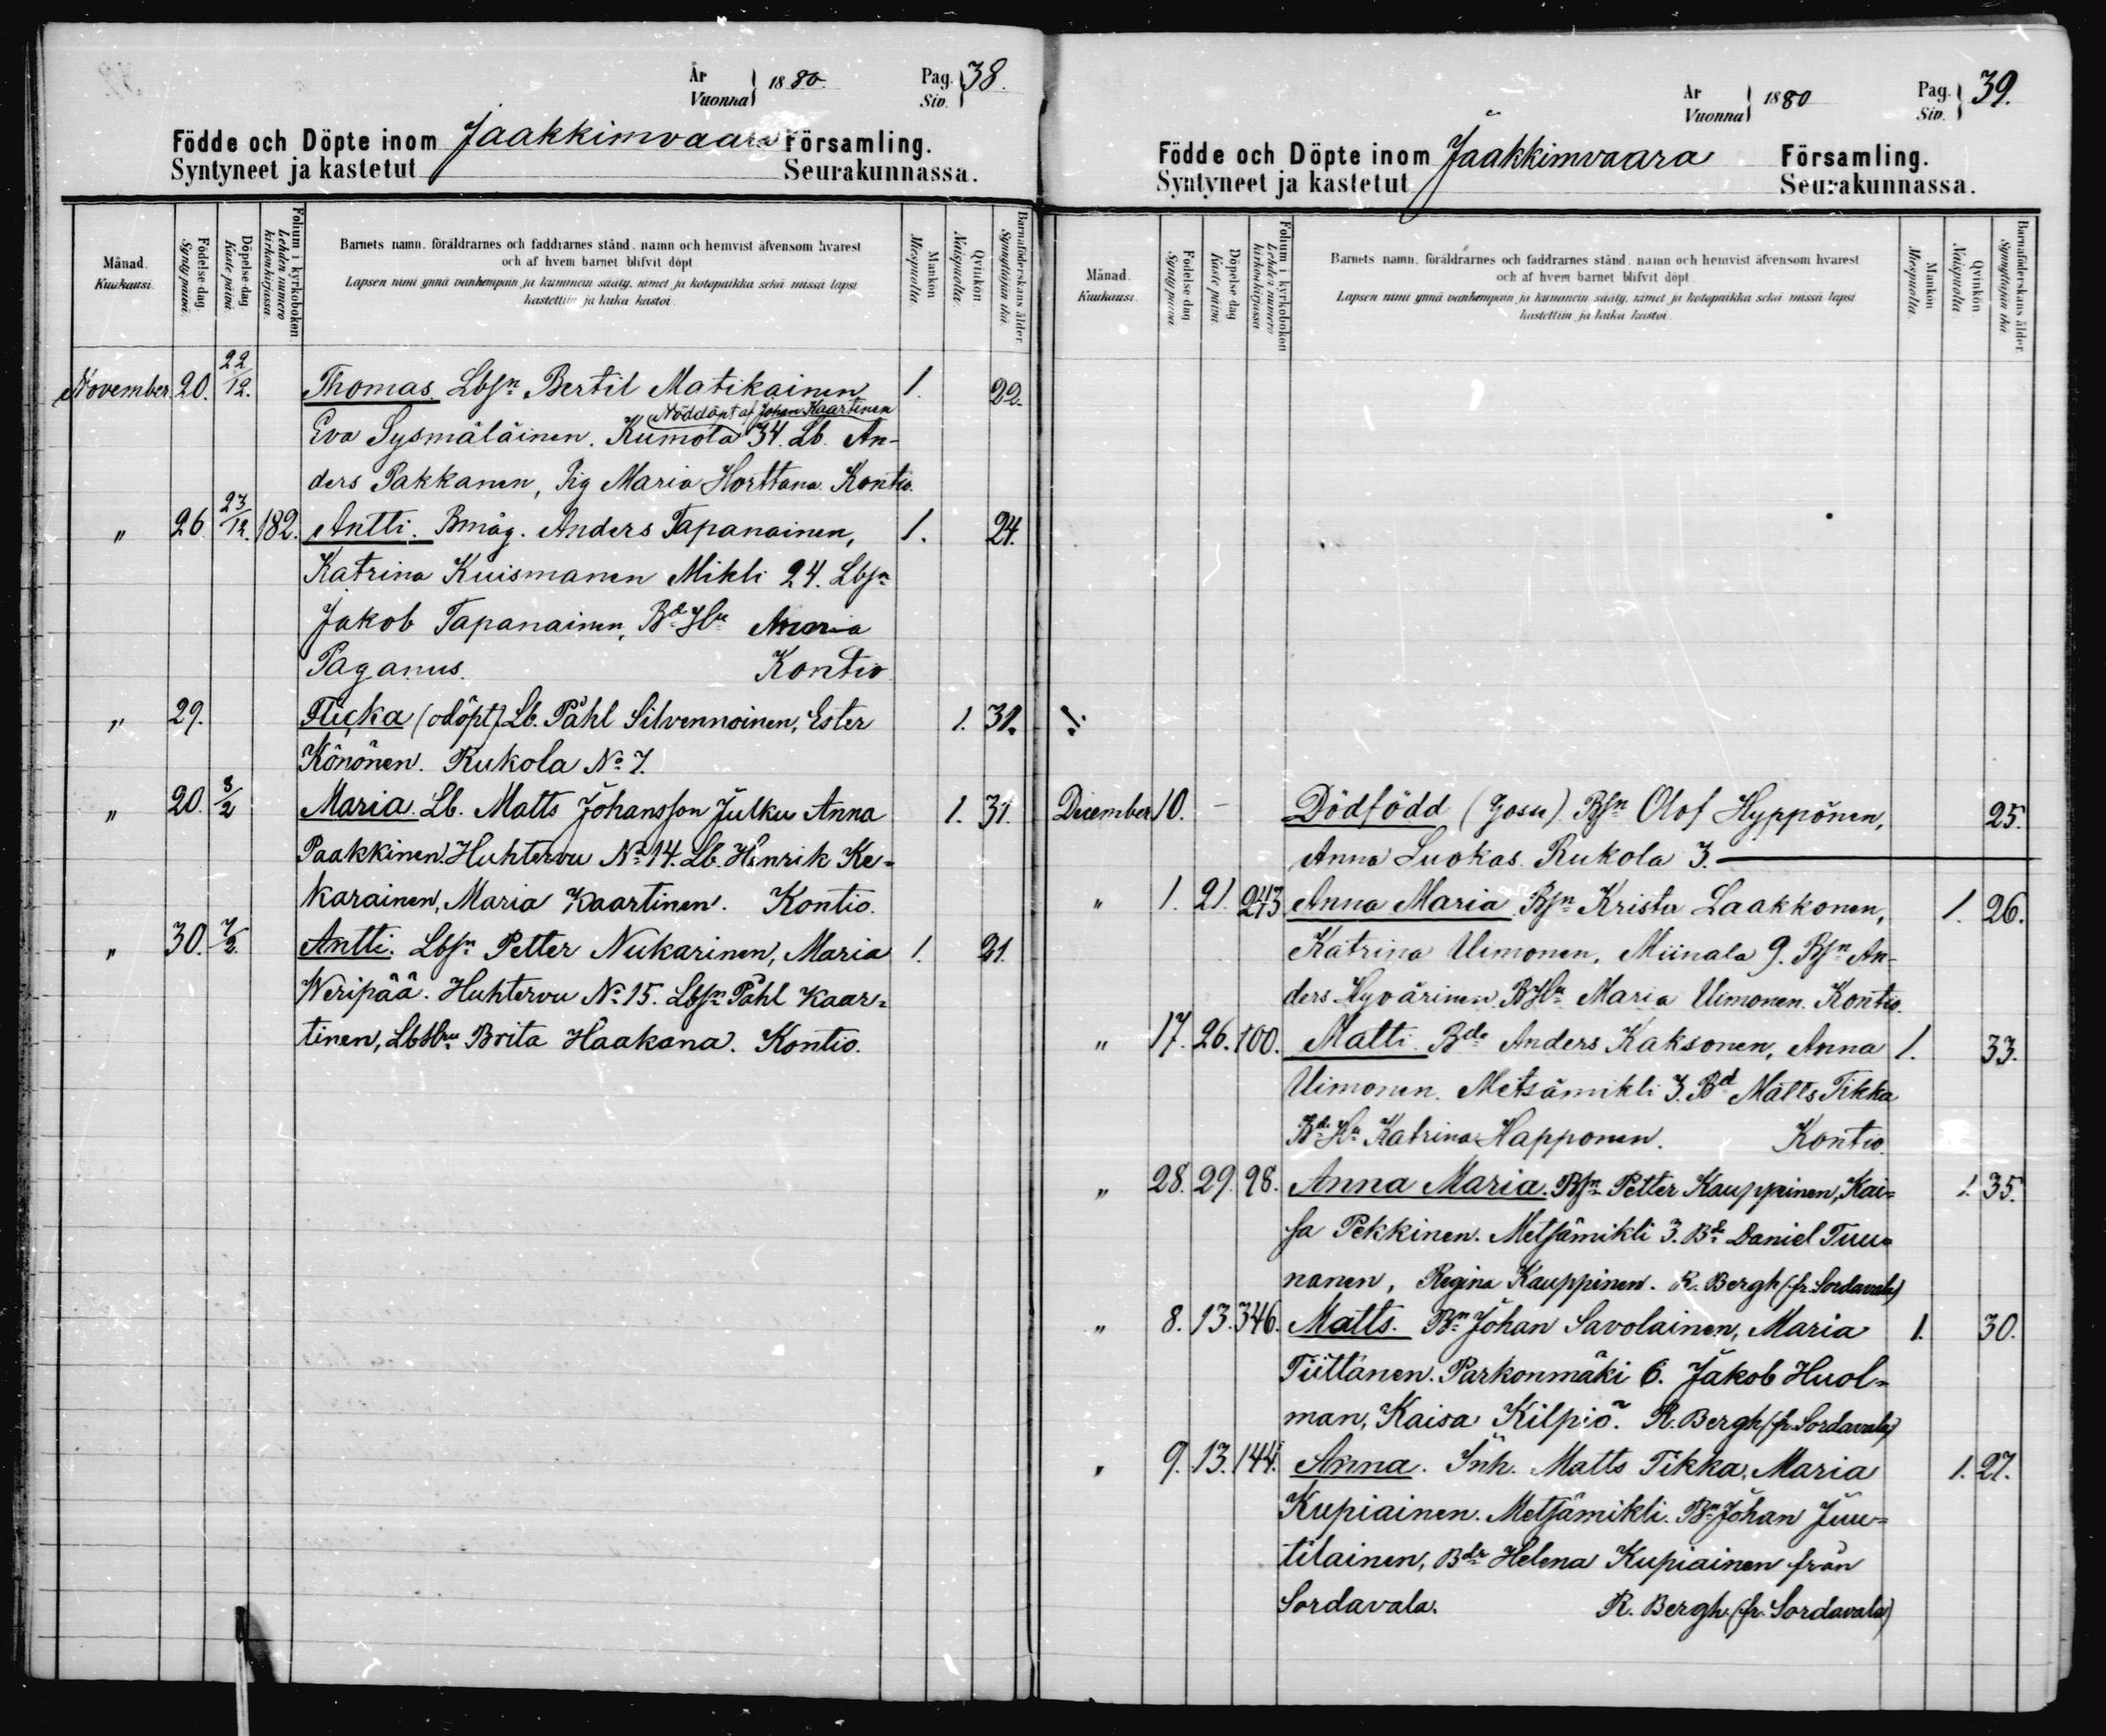 År
Vuonna } 1880. Pag. Siv. } 38.
Födde och Döpte inom Jaakkimvaara Församling.
Syntyneet ja kastetut Seurakunnassa.
Månad. Kuukausi.
Födelse dag. Synty päivä.
Döpelse dag. Kaste päivä.
Folium i kyrkoboken Lehden numero kirkonkirjassa.
Barnets namn, föräldrarnes och faddrarnes stånd, namn och hemvist äfvensom hvarest
och af hvem barnet blifvit döpt.
Lapsen nimi ynnä vanhempain ja kummein sääty, nimet ja kotopaikka sekä missä lapsi
kastettiin ja kuka kastoi.
Mankön Miespuolia.
Qvinkön Naispuolia.
Barnaföderskans ålder. Synnyttäjän ikä.
November. 20. 22/12. Thomas. Lbsn Bertil Matikainen 1. 22.
Nöddöpt af Johan Kaartinen
Eva Sysmäläinen. Kumola 34. Lb. An-
ders Pakkanen, Pig Maria Horttana. Kontio.
" 26. 23/12. 182. Antti. Bmåg. Anders Tapanainen, 1. 24.
Katrina Kuismanen Mikli 24. Lbsn
Jakob Tapanainen, Bd Hu Anna
Paganus. Kontio
" 29. Flicka (odöpt) Lb. Påhl Silvennoinen, Ester 1. 31.
Könönen. Rukola No 7.
" 20. 8/2 Maria. Lb. Matts Johansson Julku Anna 1. 31.
Paakkinen. Huhtervu No 14. Lb. Henrik Ke-
karainen, Maria Kaartinen. Kontio.
" 30. 7/2. Antti. Lbsn Petter Nukarinen, Maria 1. 21.
Weripää. Huhtervu No 15. Lbsn Påhl Kaar-
tinen, LbHu Brita Haakana. Kontio.
År
Vuonna } 1880 Pag. Siv. } 39.
Födde och Döpte inom Jaakkimvaara Församling.
Syntyneet ja kastetut Seurakunnassa.
Månad. Kuukausi.
Födelse dag. Synty päivä.
Döpelse dag. Kaste päivä.
Folium i kyrkoboken Lehden numero kirkonkirjassa.
Barnets namn, föräldrarnes och faddrarnes stånd, namn och hemvist äfvensom hvarest
och af hvem barnet blifvit döpt.
Lapsen nimi ynnä vanhempain ja kummein sääty, nimet ja kotopaikka sekä missä lapsi
kastettiin ja kuka kastoi.
Mankön Miespuolia.
Qvinkön Naispuolia.
Barnaföderskans ålder. Synnyttäjän ikä.
December 10. - Dödfödd (Gosse) Bsn Olof Hyppönen, 25.
Anna Luokas. Rukola 3.
" 1. 21. 243 Anna Maria Bsn Krister Laakkonen, 1. 26.
Katrina Uimonen, Miinala 9. Bsn An-
ders Hyvärinen. BHu Maria Uimonen. Kontio.
" 17. 26. 100. Matti. Bde Anders Kaksonen, Anna 1. 33.
Uimonen. Metsämikli 3. Bd Matts Tikka
Bde Hu Katrina Happonen. Kontio.
" 28. 29. 98. Anna Maria. Bsn Petter Kauppinen, Kai- 1. 35.
sa Pekkinen. Metsämikli 3. Bd Daniel Tuu-
nanen, Regina Kauppinen. R. Bergh (fr. Sordavala)
" 8. 13. 346. Matts. Bn Johan Savolainen, Maria 1. 30.
Tiittanen. Parkonmäki 6. Jakob Huol-
man, Kaisa Kilpiö. R. Bergh (fr. Sordavala)
" 9. 13. 144. Anna. Inh. Matts Tikka, Maria 1. 27.
Kupiainen. Metsämikli. Bn Johan Juu-
tilainen, Bdr Helena Kupiainen från
Sordavala. R. Bergh. (fr. Sordavala)